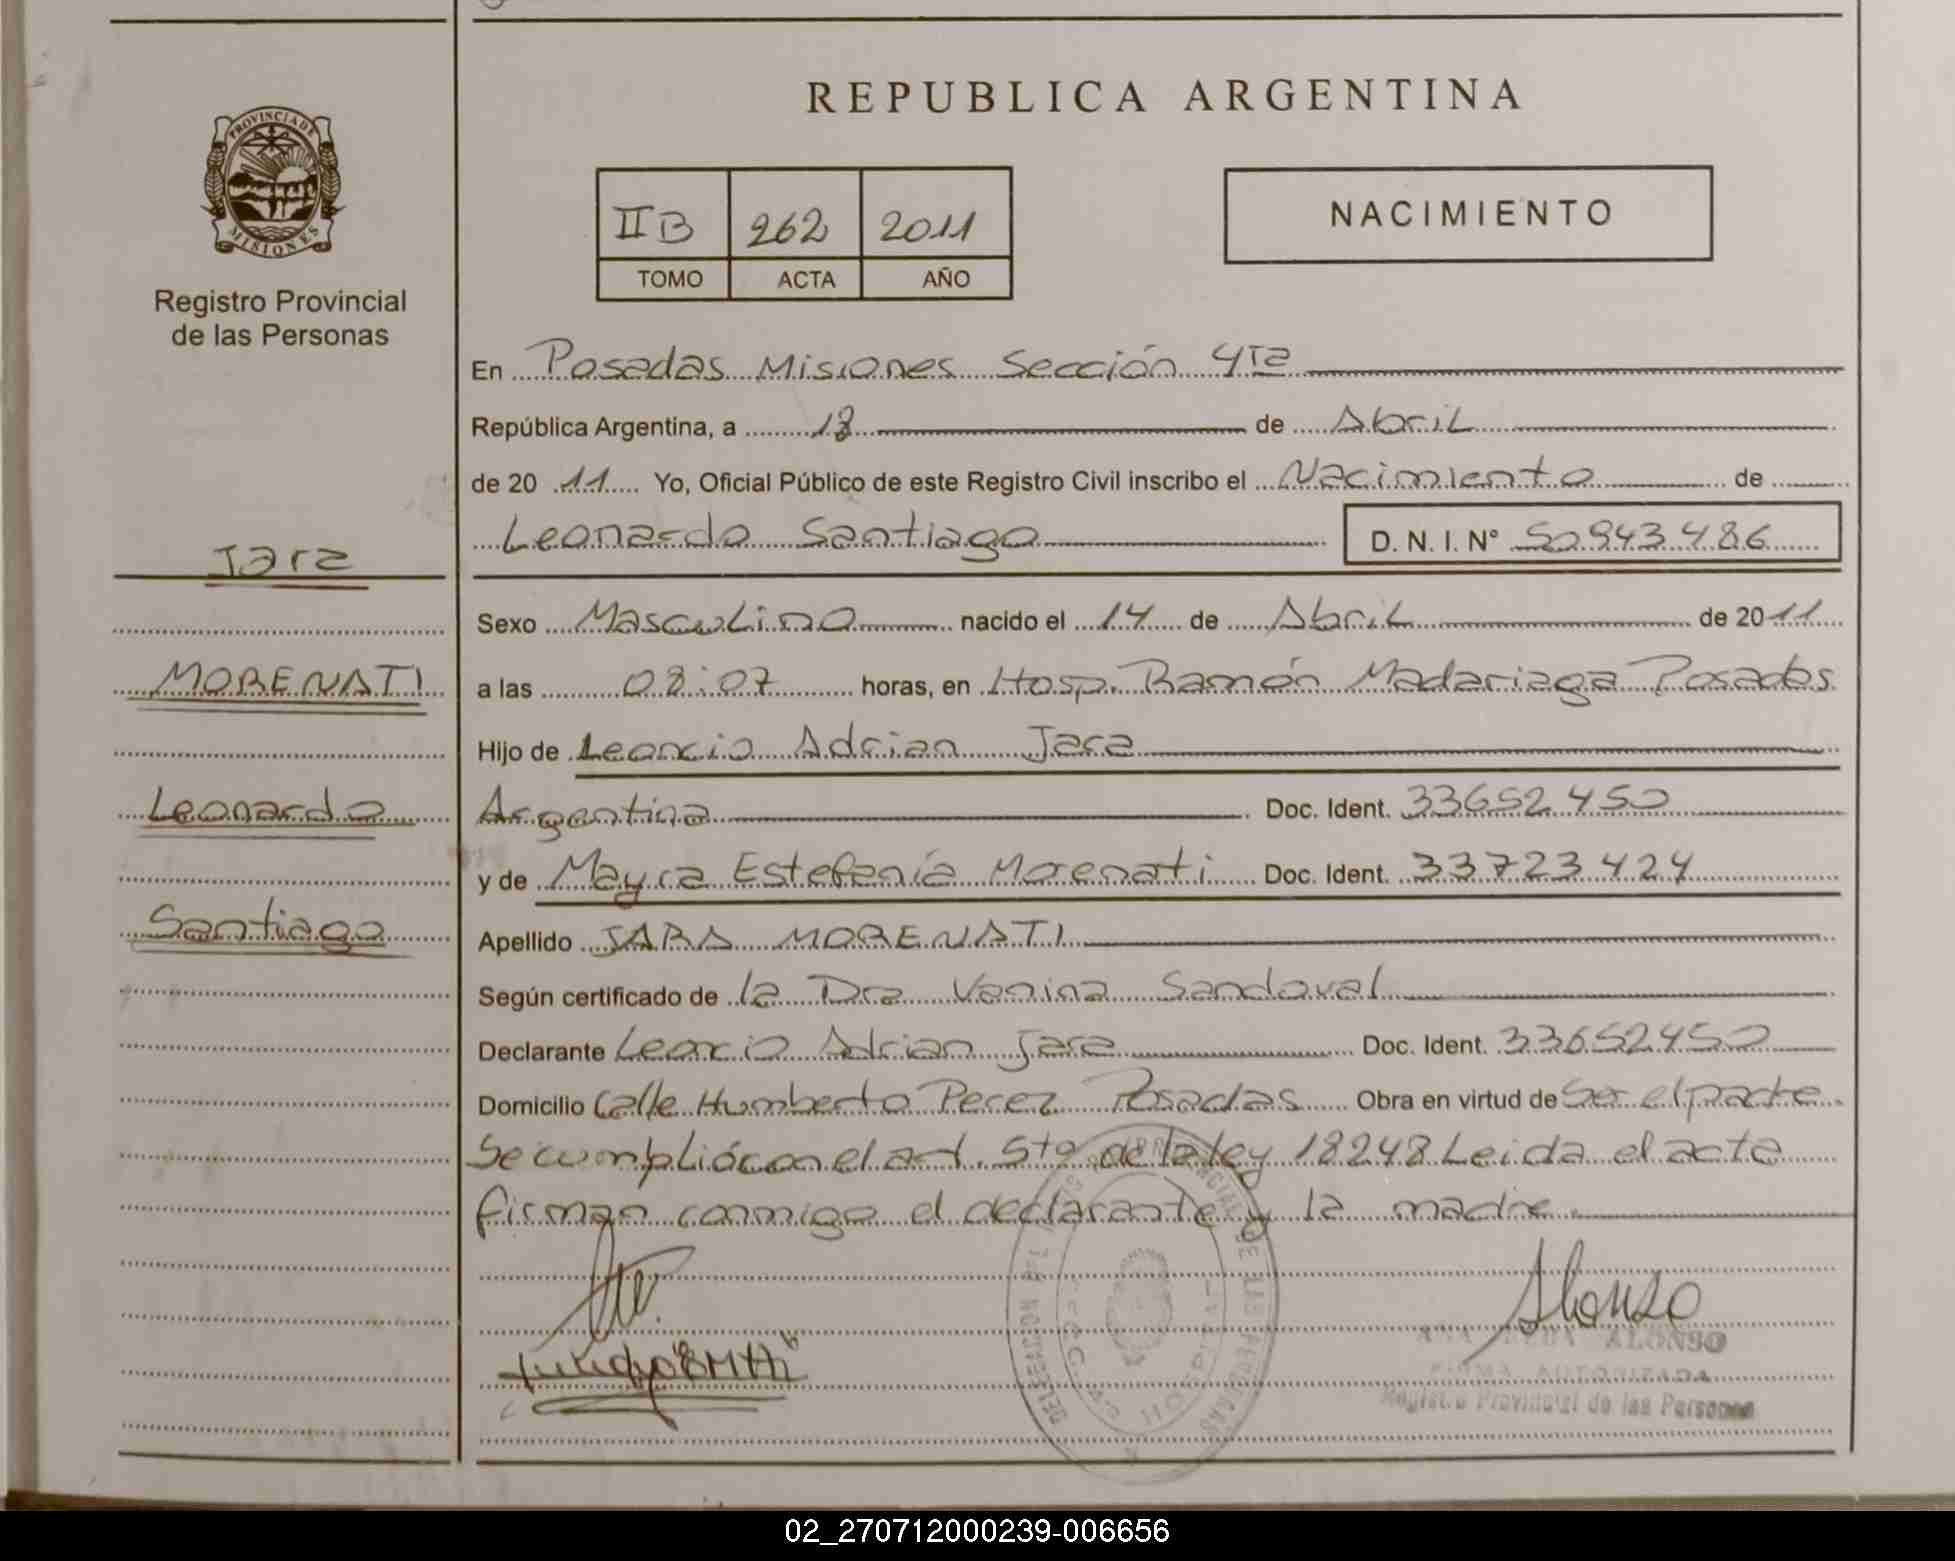 PROVINCIA DE
MISIONES
Registro Provincial
de las Personas
Jara
MORENATI
Leonardo
Santiago
REPUBLICA ARGENTINA
II B 262 2011
TOMO ACTA AÑO
NACIMIENTO
En Posadas Misiones Sección 4ta
República Argentina, a de Abril
de 20 11 Yo, Oficial Público de este Registro Civil inscribo el Nacimiento de
Leonardo Santiago D. N. I. N° 50943486
Sexo Masculino nacido el 14 de Abril de 2011
a las 08:07 horas, en Hosp. Ramón Madariaga Posadas
Hijo de Leoncio Adrian Jara
Argentina Doc. Ident. 33652450
y de Mayra Estefanía Morenati Doc. Ident. 33723424
Apellido JARA MORENATI
Según certificado de la Dra Vanina Sandoval
Declarante Leoncio Adrian Jara Doc. Ident. 33652450
Domicilio Calle Humberto Perez Posadas Obra en virtud de Ser el padre
Se cumplió con el art. 5to de la ley 18248 Leida el acta
firman conmigo el declarante y la madre
Alonso
ALONSO
FIRMA AUTORIZADA
Registro Provincial de las Personas
02_270712000239-006656